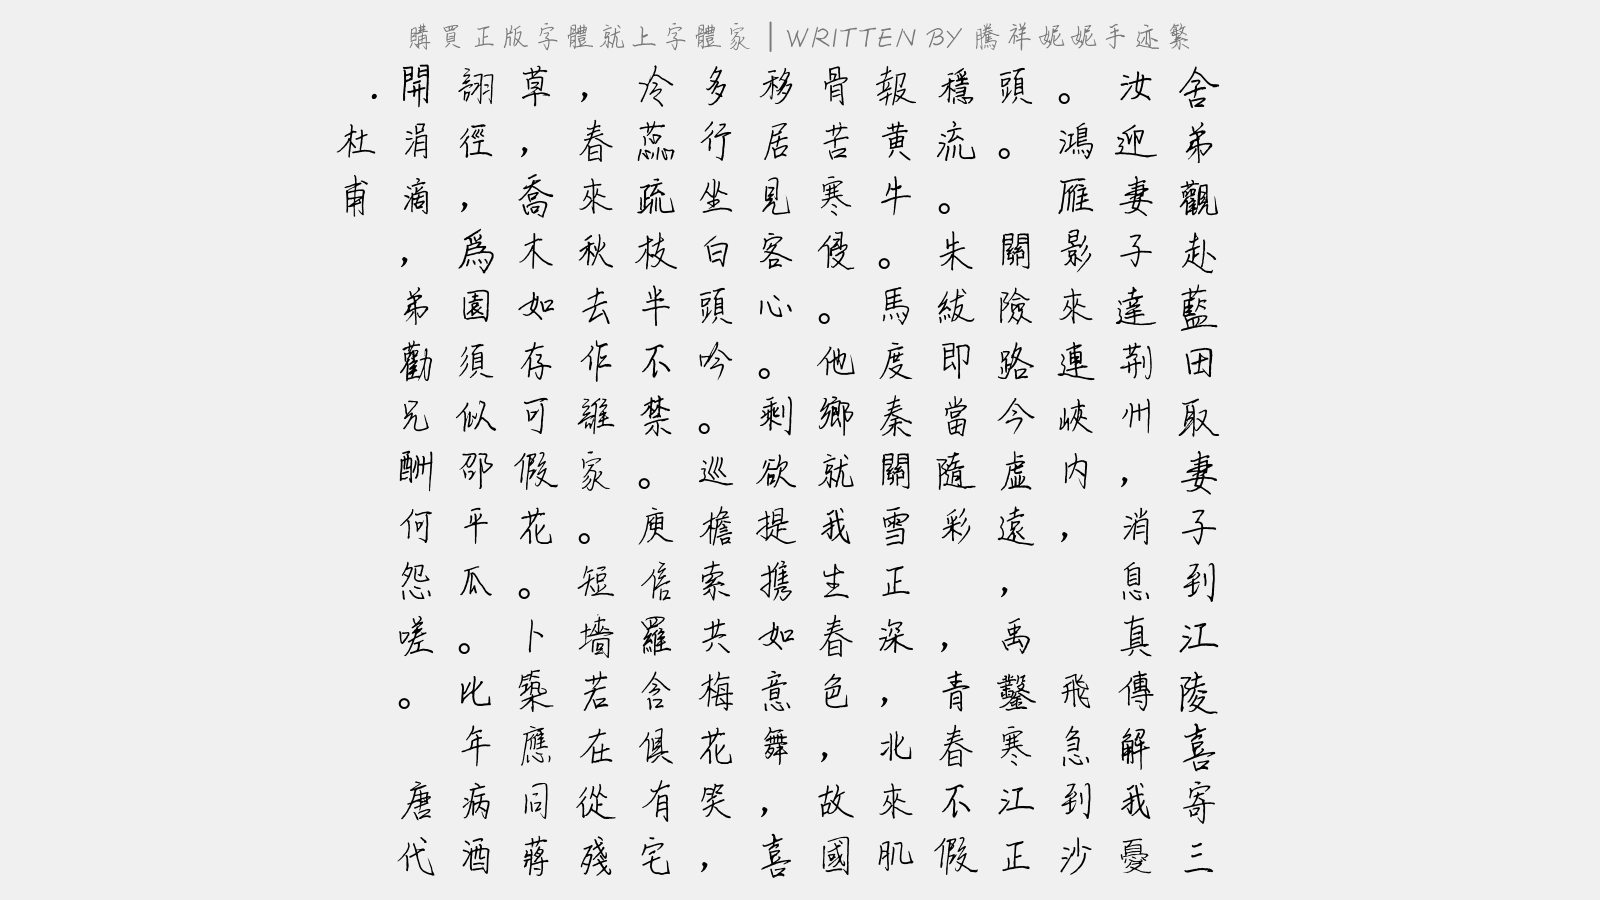 購買正版字體就上字體家 | WRITTEN BY 騰祥妮妮手迹繁
舍弟觀赴藍田取妻子到江陵喜寄三
汝迎妻子達荆州,消息真傳解我憂
。鴻雁影來連峽内, 飛急到沙
頭。 關險路今虚遠,禹鑿寒江正
穩流。朱紱即當隨彩 ,青春不假
報黄牛。馬度秦關雪正深,北來肌
骨苦寒侵。他鄉就我生春色,故國
移居見客心。剩欲提携如意舞,喜
多行坐白頭吟。巡檐索共梅花笑,
冷蕊疏枝半不禁。庾信羅含俱有宅
,春來秋去作誰家。短墻若在從殘
草,喬木如存可假花。卜築應同蔣
詡徑,爲園須似邵平瓜。比年病酒
開涓滴,弟勸兄酬何怨嗟。 唐代
.杜甫